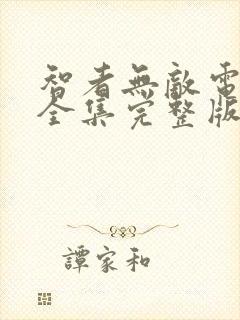 智者無敵電
全集完整版
譚家和